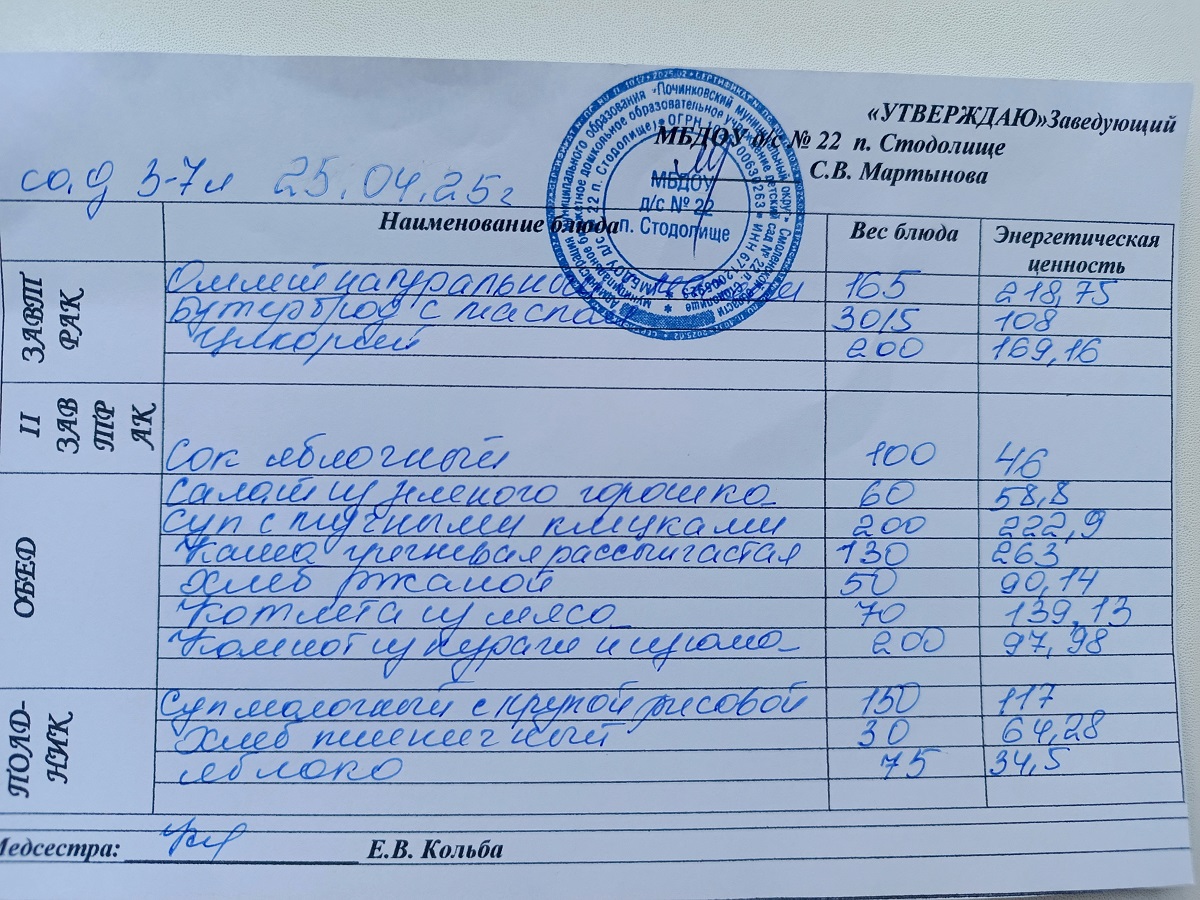 «УТВЕРЖДАЮ»Заведующий
МБДОУ д/с № 22 п. Стодолище
С.В. Мартынова
МБДОУ
д/с № 22
п. Стодолище
сад 3-7л 25.04.25г
Наименование блюда Вес блюда Энергетическая ценность
ЗАВТРАК
Омлет натуральный 165 218,75
Бутерброд с маслом 30/5 108
Цикорий 200 169,16
II ЗАВТРАК
Сок яблочный 100 46
ОБЕД
Салат из зеленого горошка 60 58,8
Суп с мучными клецками 200 222,9
Каша гречневая рассыпчатая 130 263
Хлеб ржаной 50 90,14
Котлета из мяса 70 139,13
Компот из кураги и изюма 200 97,98
ПОЛДНИК
Суп молочный с крупой рисовой 150 117
Хлеб пшеничный 30 64,28
Яблоко 75 34,5
Медсестра: Е.В. Кольба